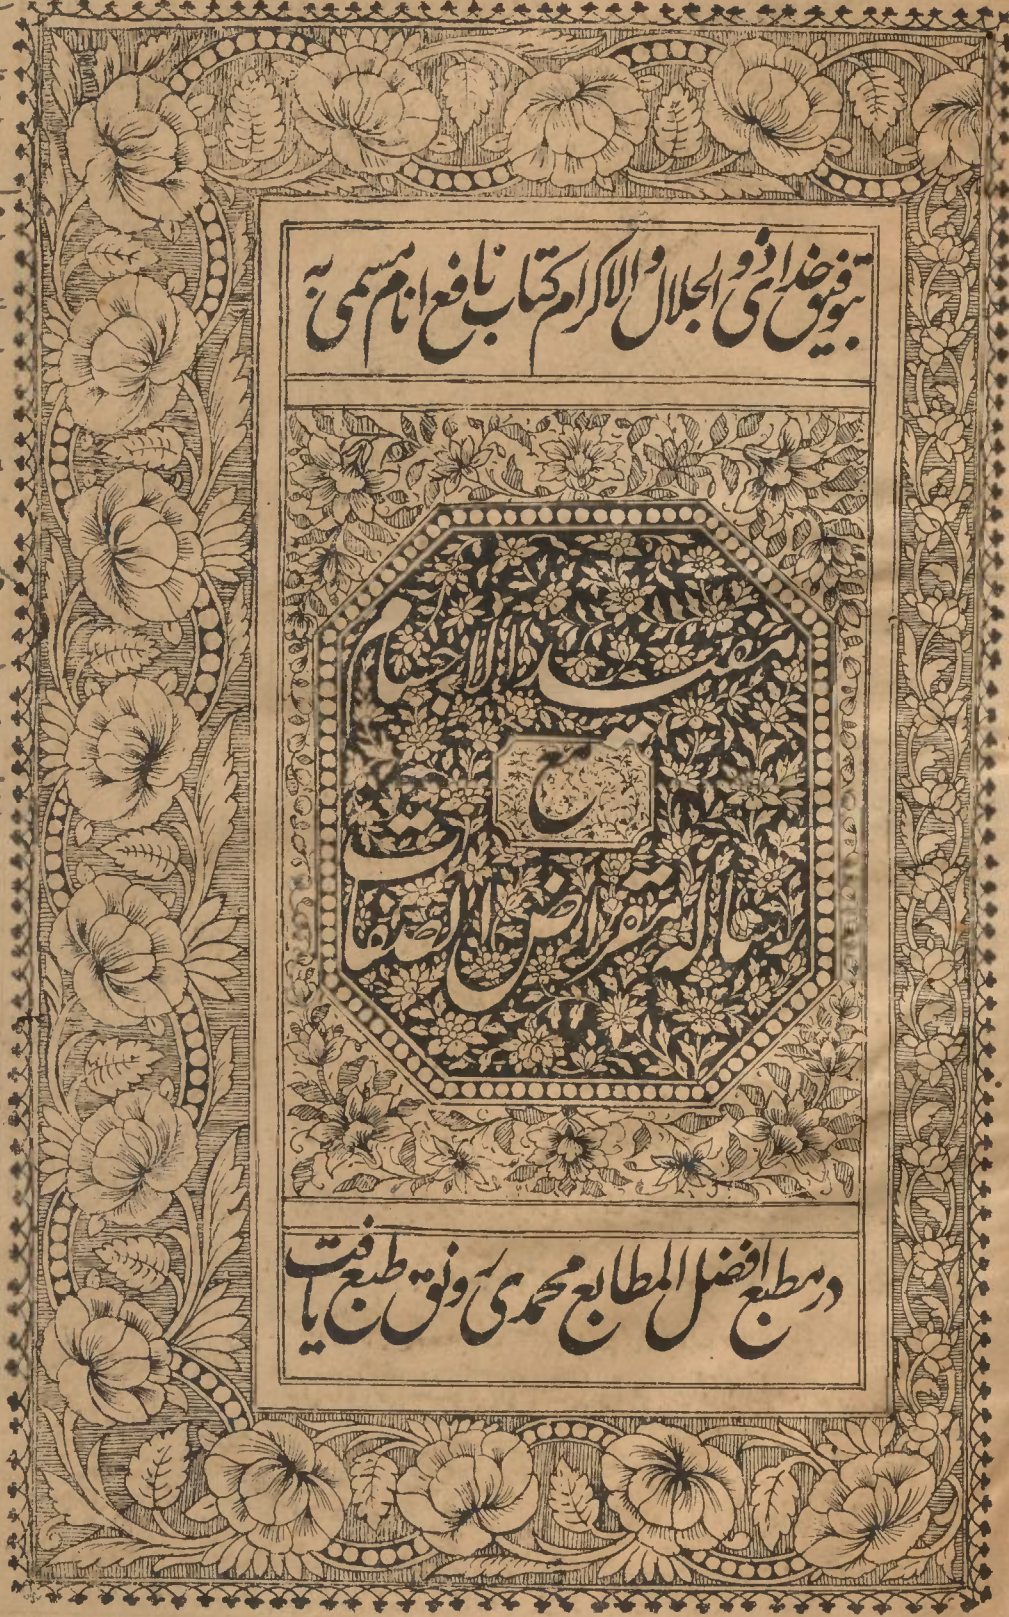 بتوفیق خدای ذو الجلال والاکرام کتاب نافع انام مسمی به
مفید الاجسام
مع
رساله قراضه
در مطبع افضل المطابع محمدی رونق طبع یافت